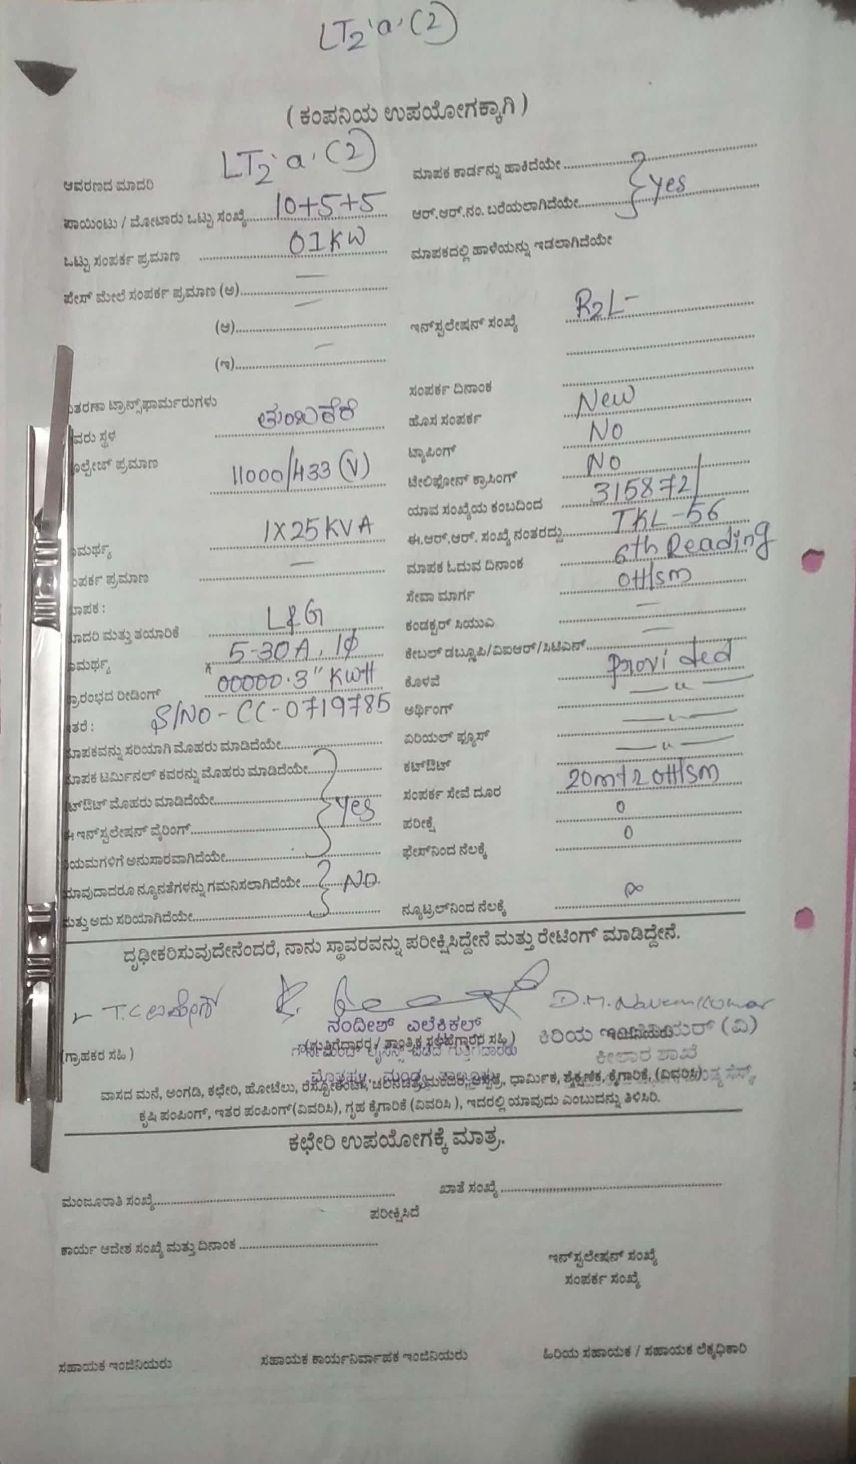 LT2 'a' (2)
( ಕಂಪನಿಯ ಉಪಯೋಗಕ್ಕಾಗಿ )
ಆವರಣದ ಮಾದರಿ LT2 'a' (2)
ಮಾಪಕ ಕಾರ್ಡನ್ನು ಹಾಕಿದೆಯೇ
ಪಾಯಿಂಟು / ಮೋಟಾರು ಒಟ್ಟು ಸಂಖ್ಯೆ 10+5+5
ಆರ್.ಆರ್.ನಂ. ಬರೆಯಲಾಗಿದೆಯೇ } Yes
ಒಟ್ಟು ಸಂಪರ್ಕ ಪ್ರಮಾಣ 01KW
ಮಾಪಕದಲ್ಲಿ ಹಾಳೆಯನ್ನು ಇಡಲಾಗಿದೆಯೇ
ಫೇಸ್ ಮೇಲೆ ಸಂಪರ್ಕ ಪ್ರಮಾಣ (ಅ) —
(ಆ) —
ಇನ್‌ಸ್ಟಲೇಷನ್ ಸಂಖ್ಯೆ R2L-
(ಇ) —
ತರಣಾ ಟ್ರಾನ್ಸ್‌ಫಾರ್ಮರುಗಳು
ಸಂಪರ್ಕ ದಿನಾಂಕ
ವರು ಸ್ಥಳ ತುಂಬಕೆರೆ
ಹೊಸ ಸಂಪರ್ಕ New
ೋಲ್ಟೇಜ್ ಪ್ರಮಾಣ 11000/433 (V)
ಟ್ಯಾಪಿಂಗ್ No
ಟೆಲಿಫೋನ್ ಕ್ರಾಸಿಂಗ್ No
ಯಾವ ಸಂಖ್ಯೆಯ ಕಂಬದಿಂದ 315872/
ಾಮರ್ಥ್ಯ 1X25KVA
ಈ.ಆರ್.ಆರ್. ಸಂಖ್ಯೆ ನಂತರದ್ದು TKL-56
ಂಪರ್ಕ ಪ್ರಮಾಣ —
ಮಾಪಕ ಓದುವ ದಿನಾಂಕ 6th Reading
ಾಪಕ :
ಸೇವಾ ಮಾರ್ಗ OH/SM
ಾದರಿ ಮತ್ತು ತಯಾರಿಕೆ L&G
ಕಂಡಕ್ಟರ್ ಸಿಯುಎ —
ಾಮರ್ಥ್ಯ 5-30A, 1φ
ಕೇಬಲ್ ಡಬ್ಲೂಪಿ/ವಿಐಆರ್/ಸಿಟಿಎಸ್ —
್ರಾರಂಭದ ರೀಡಿಂಗ್ 00000.3" KWH
ಕೊಳವೆ provided
ತರೆ : S/NO - CC-0719785
ಅರ್ಥಿಂಗ್ —"—
ಾಪಕವನ್ನು ಸರಿಯಾಗಿ ಮೊಹರು ಮಾಡಿದೆಯೇ
ಏರಿಯಲ್ ಫ್ಯೂಸ್ —"—
ಾಪಕ ಟರ್ಮಿನಲ್ ಕವರನ್ನು ಮೊಹರು ಮಾಡಿದೆಯೇ
ಕಟ್‌ಔಟ್ —"—
ಟ್‌ಔಟ್ ಮೊಹರು ಮಾಡಿದೆಯೇ } Yes
ಸಂಪರ್ಕ ಸೇವೆ ದೂರ 20m+2 OH/SM
ಈ ಇನ್‌ಸ್ಟಲೇಷನ್ ವೈರಿಂಗ್
ಪರೀಕ್ಷೆ 0
ಿಯಮಗಳಿಗೆ ಅನುಸಾರವಾಗಿದೆಯೇ
ಫೇಸ್‌ನಿಂದ ನೆಲಕ್ಕೆ 0
ಾವುದಾದರೂ ನ್ಯೂನತೆಗಳನ್ನು ಗಮನಿಸಲಾಗಿದೆಯೇ } NO.
ುತ್ತು ಅದು ಸರಿಯಾಗಿದೆಯೇ
ನ್ಯೂಟ್ರಲ್‌ನಿಂದ ನೆಲಕ್ಕೆ ∞
ದೃಢೀಕರಿಸುವುದೇನೆಂದರೆ, ನಾನು ಸ್ಥಾವರವನ್ನು ಪರೀಕ್ಷಿಸಿದ್ದೇನೆ ಮತ್ತು ರೇಟಿಂಗ್ ಮಾಡಿದ್ದೇನೆ.
D.M.Naveen Kumar
ನಂದೀಶ್ ಎಲೆಕ್ಟ್ರಿಕಲ್
(ಗ್ರಾಹಕರ ಸಹಿ )
(ಗುತ್ತಿಗೆದಾರರ / ತಾಂತ್ರಿಕ ಸಲಹೆಗಾರರ ಸಹಿ )
ಕಿರಿಯ ಇಂಜಿನಿಯರ್ (ವಿ)
ಕೀಲಾರ ಶಾಖೆ
ವಾಸದ ಮನೆ, ಅಂಗಡಿ, ಕಛೇರಿ, ಹೋಟೆಲು, ಧಾರ್ಮಿಕ, ಶೈಕ್ಷಣಿಕ, ಕೈಗಾರಿಕೆ, (ವಿವರಿಸಿ)
ಕೃಷಿ ಪಂಪಿಂಗ್, ಇತರ ಪಂಪಿಂಗ್(ವಿವರಿಸಿ), ಗೃಹ ಕೈಗಾರಿಕೆ (ವಿವರಿಸಿ ), ಇದರಲ್ಲಿ ಯಾವುದು ಎಂಬುದನ್ನು ತಿಳಿಸಿರಿ.
ಕಛೇರಿ ಉಪಯೋಗಕ್ಕೆ ಮಾತ್ರ.
ಮಂಜೂರಾತಿ ಸಂಖ್ಯೆ
ಖಾತೆ ಸಂಖ್ಯೆ
ಪರೀಕ್ಷಿಸಿದೆ
ಕಾರ್ಯ ಆದೇಶ ಸಂಖ್ಯೆ ಮತ್ತು ದಿನಾಂಕ
ಇನ್‌ಸ್ಟಲೇಷನ್ ಸಂಖ್ಯೆ
ಸಂಪರ್ಕ ಸಂಖ್ಯೆ
ಸಹಾಯಕ ಇಂಜಿನಿಯರು
ಸಹಾಯಕ ಕಾರ್ಯನಿರ್ವಾಹಕ ಇಂಜಿನಿಯರು
ಹಿರಿಯ ಸಹಾಯಕ / ಸಹಾಯಕ ಲೆಕ್ಕಧಿಕಾರಿ